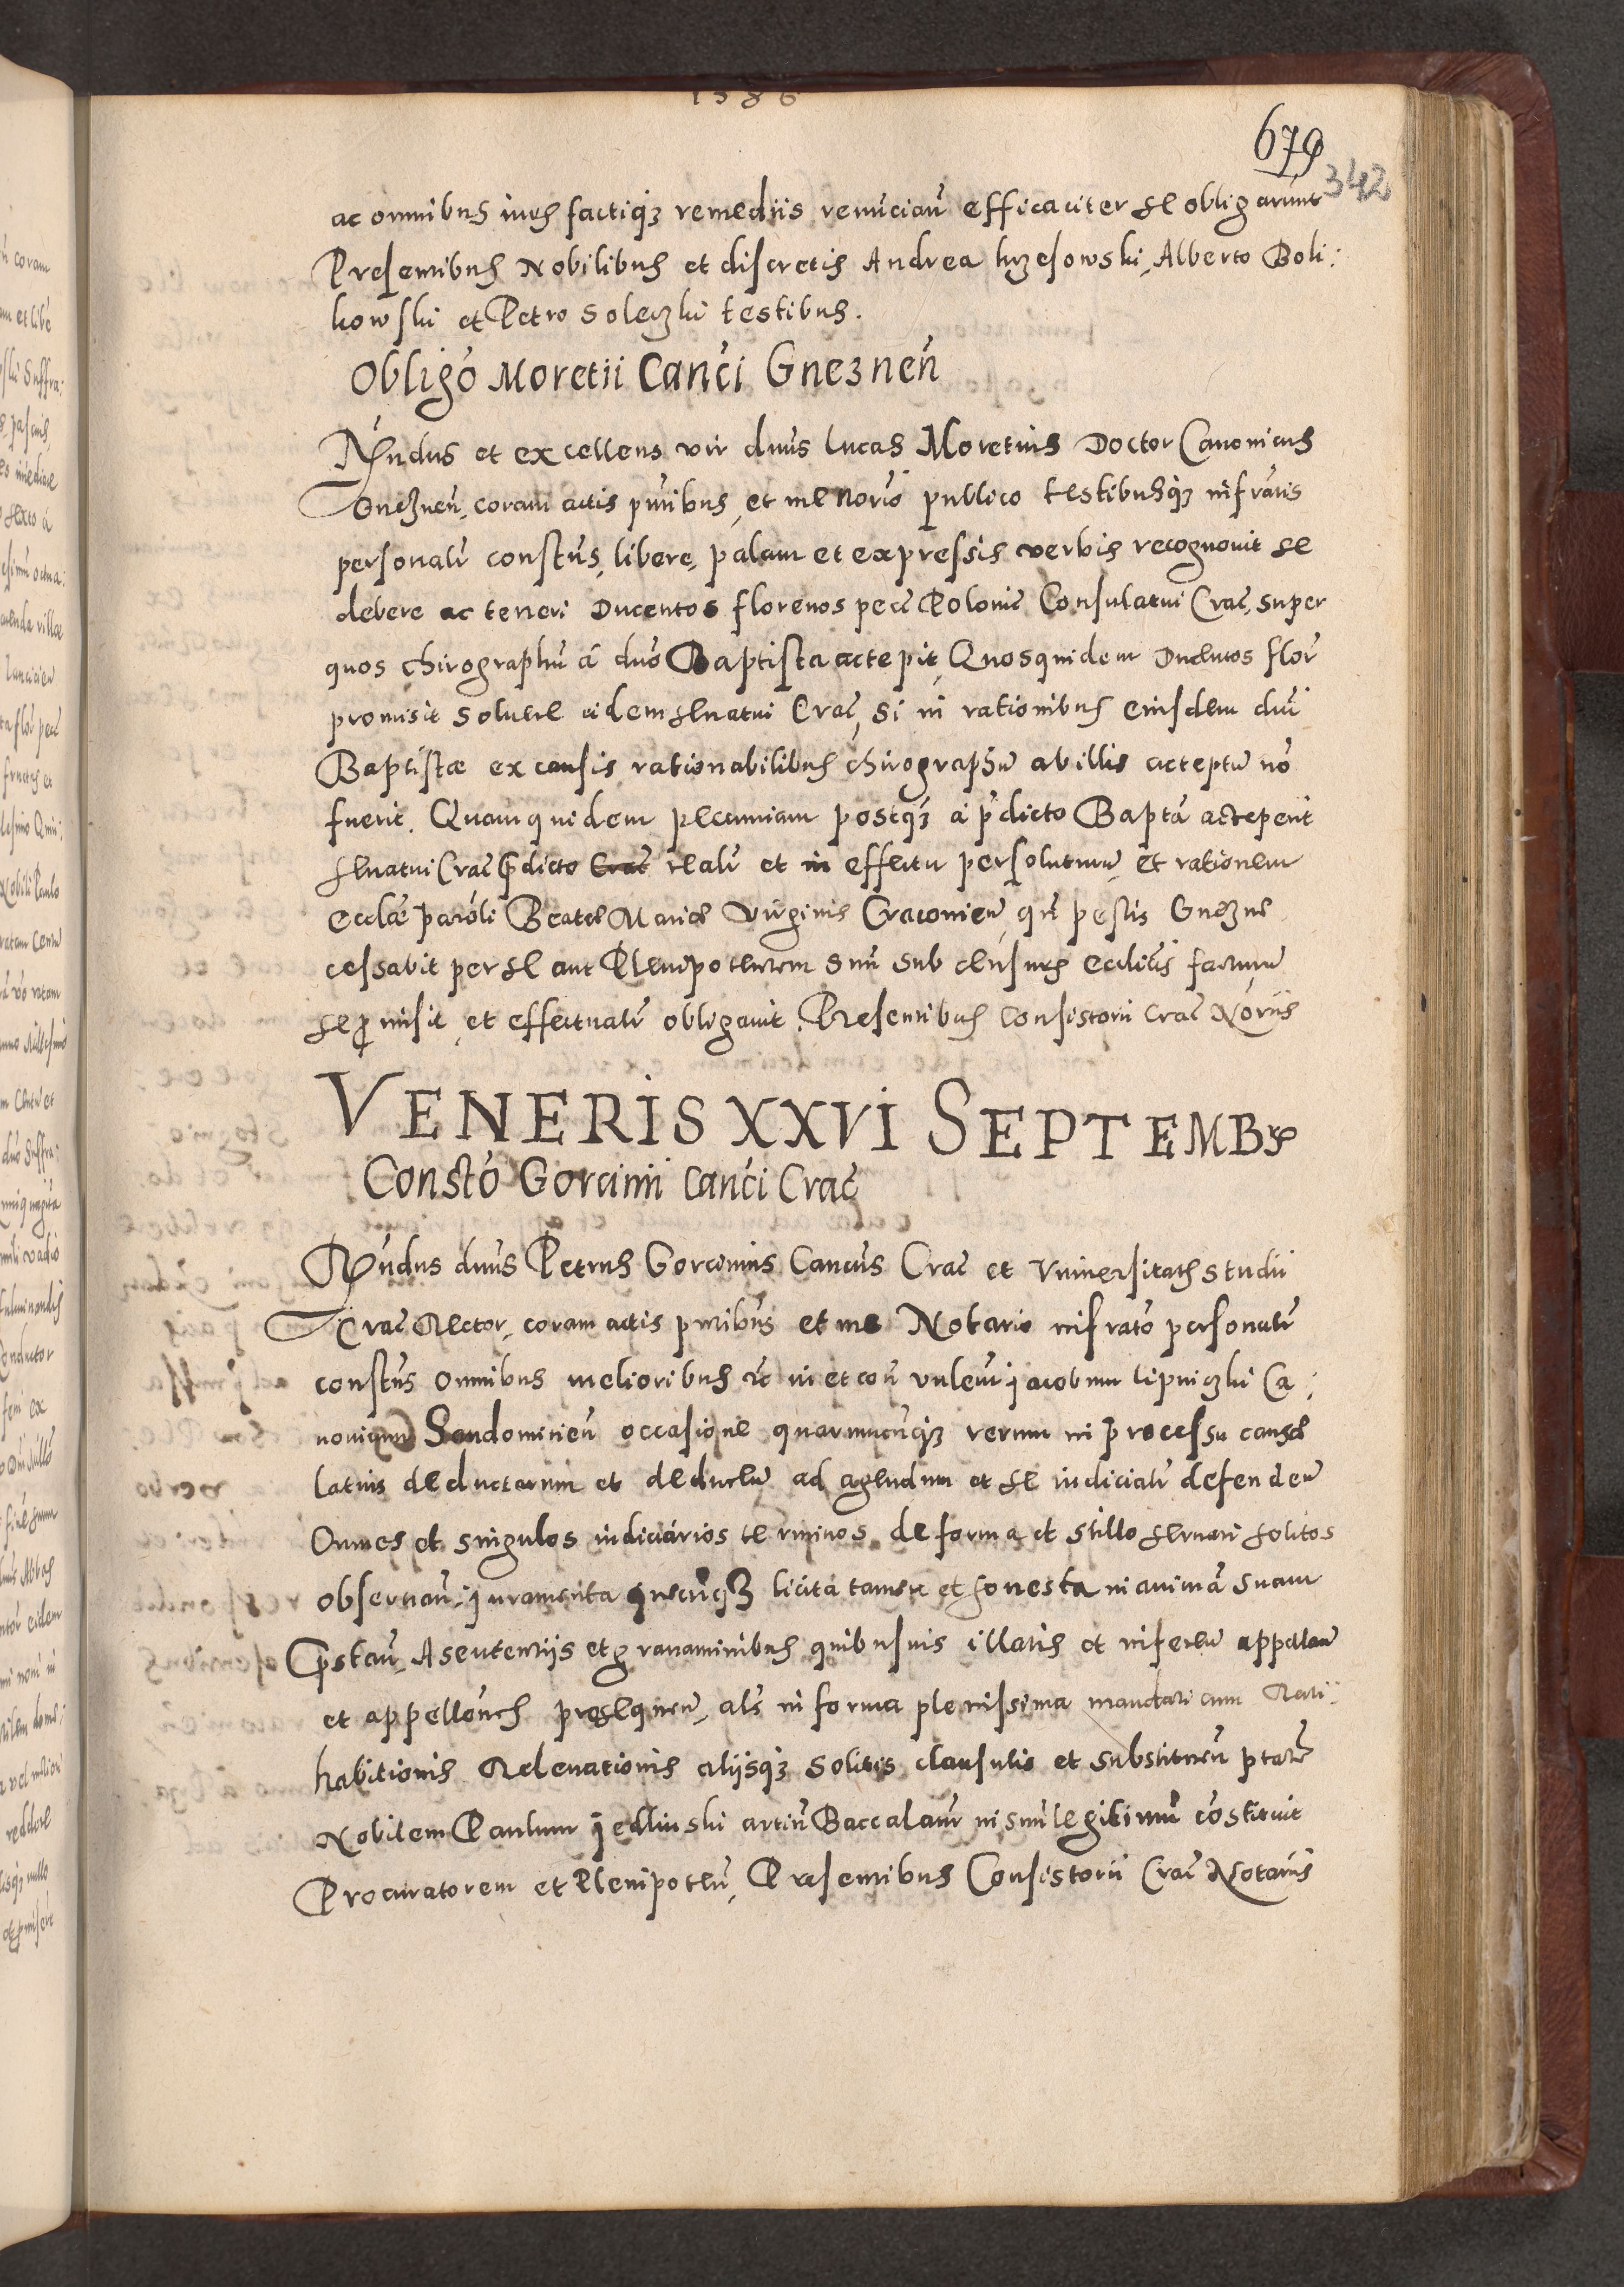 1586
679
342
ac omnibus iuris factiq₃ remediis renuncian̄ efficaciter se obligarunt
Presentibus Nobilibus et discretis Andrea krzesowski, Alberto Boli:
kowski et Petro Soleczki testibus.
Obligo Moretii Canci Gneznen̄
Rn̄dus et excellens vir dnus Lucas Moretius Doctor Canonicus
Gneznen̄, coram actis pn̄tibus, et me Norio publico testibusq₃ infratis
personalr̄ constus, libere, palam et expressis verbis recognouit se
debere ac teneri Ducentos florenos pec̄ Polonic̄ Consulatui Crac̄, super
quos chirographū ā dno Baptista accepit, Quosquidem Ducentos flor̄
promisit soluere eidem senatui Crac̄, si in rationibus eiusdem dni
Baptistæ ex causis rationabilibus chirographū ab illis acceptū nō
fuerit. Quam quidem pecuniam postq₃ ā p̄dicto Bapta acceperit
senatui Crac̄ p̄dicto Crac̄ realr̄ et in effectu persoluturū, et rationem
ecclæ paroli Beatæ Mariæ Virginis Cracouien̄, qn̄ pestis Gneznæ
cessabit per se aut Plenipotentem suū sub censuris ecclicis facturū
se p̱misit, et effectualr̄ obligauit. Presentibus Consistorii Crac̄ Nōriis
VENERIS XXVI SEPTEMBR
Constō Gorcinii Canci Crac̄
Rn̄dus dnus Petrus Gorcinius Cancus Crac̄ et Vniuersitatis studii
Crac̄ Rector, coram actis pn̄tibus et me Notario infrato personalr̄
constus omnibus melioribus etc in et con̄ vulem̄ Jacobum Lipniczki Ca:
nonicum Sandomirien̄ occasione quarumcunq₃ rerum in processu causæ
latius deductarum et deducen̄ ad agendum et se iudicialr̄ defenden̄
Omnes et singulos iudiciarios terminos de forma et stillo seruari solitos
obseruan̄, iuramenta quecunq₃ licita tamen et honesta in animā suam
P̄stan̄, A sententijs et grauaminibus quibusuis illatis et inferen̄ appelan̄
et appellōnes prosequen̄, als in forma plenissima mandati cum Rati:
habitionis Releuationis alijsq₃ solitis clausulis et substituen̄ ptate
Nobilem Paulum Jedlinski artiū Baccalaur̄ in suū legitimū cōstituit
Procuratorem et Plenipoten̄, Presentibus Consistorii Crac̄ Notariis